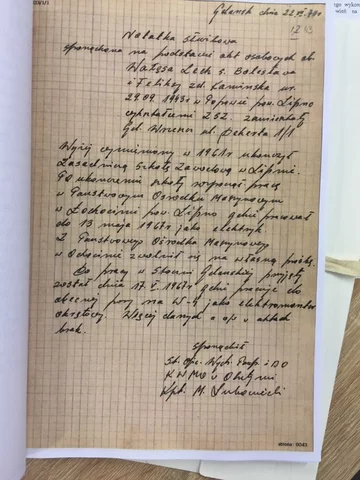 Gdańsk dnia 22.
Notatka służbowa
sporządzona na podstawie akt osobowych ob.
Wałęsa Lech s. Bolesława
i Feliksy zd. Kamińska ur.
29.09.1943 r w Popowie pow. Lipno
wykształcenie ZSZ. zamieszkały
Gd. Wrzeszcz ul. 1/1
Wyżej wymieniony w 1961 r ukończył
Zasadniczą Szkołę Zawodową w Lipnie.
Po ukończeniu szkoły rozpoczął pracę
w Państwowym Ośrodku Maszynowym
w Łochocinie pow. Lipno gdzie pracował
do 13 maja 1967 r jako elektryk
Z Państwowego Ośrodka Maszynowy
w zwolnił się na własną prośbę.
Do pracy w Stoczni Gdańskiej przyjęty
został dnia 1967 r gdzie pracuje do
obecnej pory na W-4 jako elektromonter
okrętowy. Więcej danych o w aktach
brak.
sporządził
KWMO w Olsztynie
Kpt. M.
strona: 0043